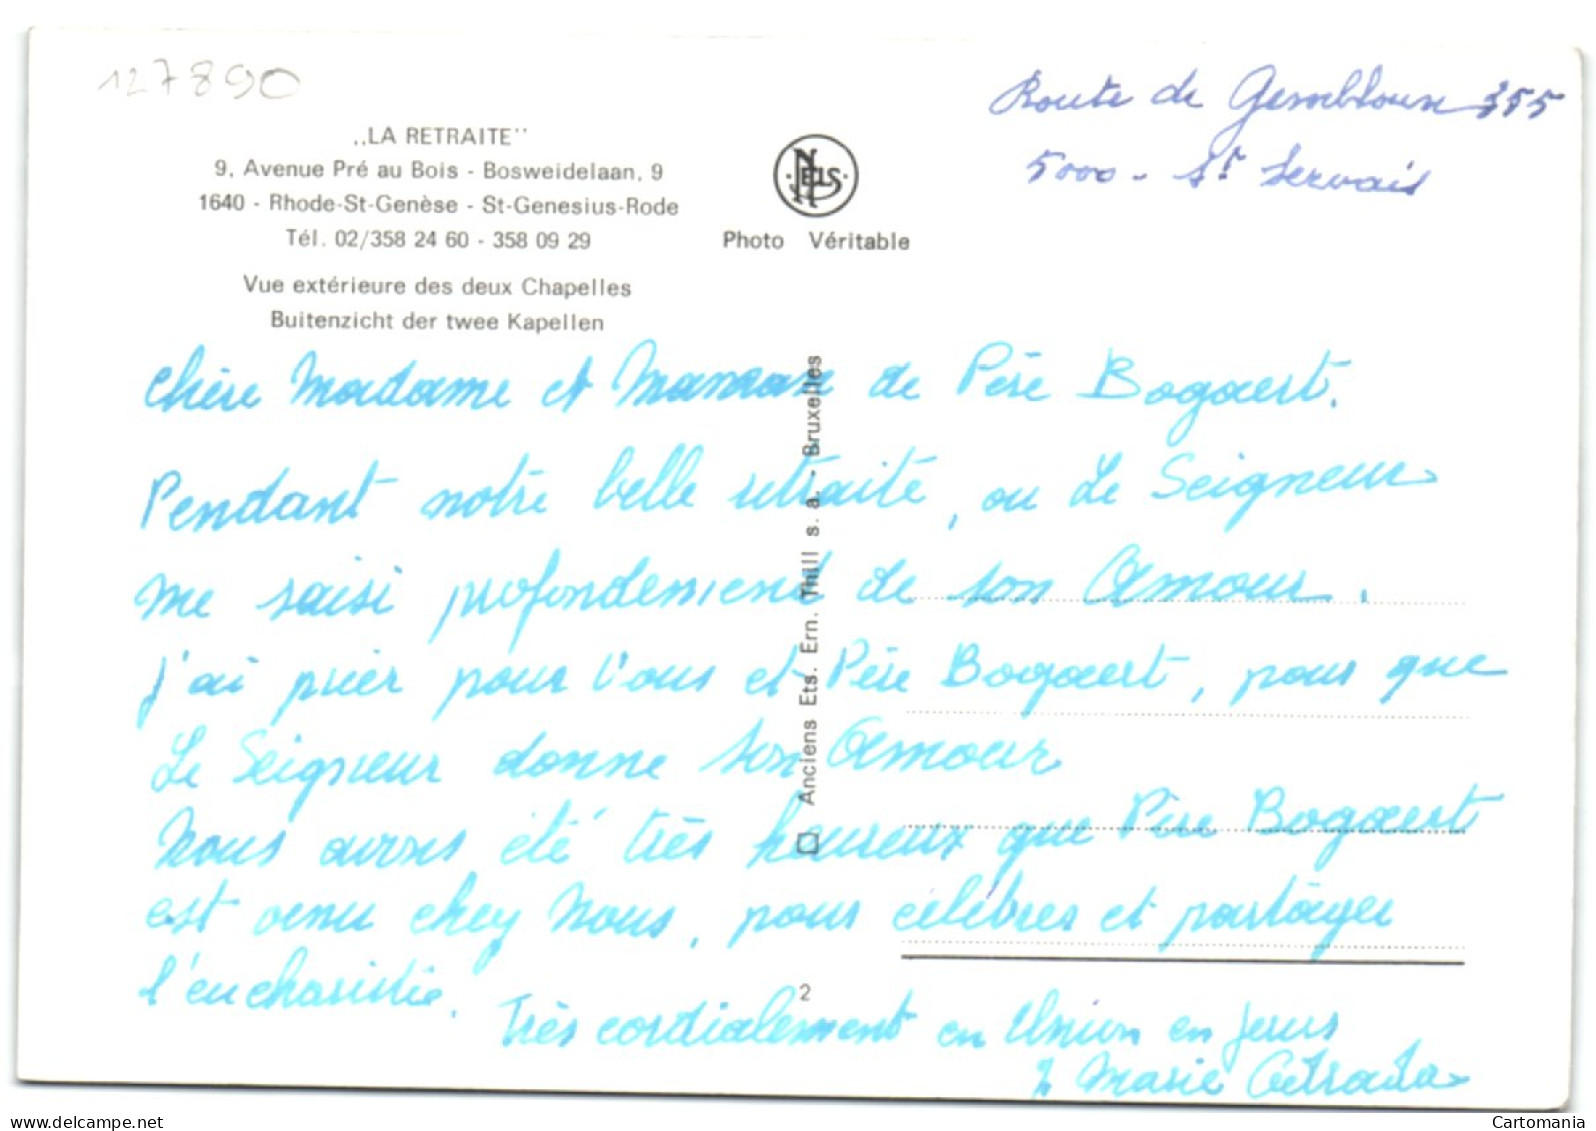 127890
„LA RETRAITE"
9, Avenue Pré au Bois - Bosweidelaan, 9
1640 - Rhode-St-Genèse - St-Genesius-Rode
Tél. 02/358 24 60 - 358 09 29
Vue extérieure des deux Chapelles
Buitenzicht der twee Kapellen
NELS
Photo Véritable
Route de Gembloux 355
5000 - St Servais
Chère Madame et Maman de Père Bogaert.
Pendant notre belle retraite, ou Le Seigneur
me saisi profondement de son Amour.
J'ai prier pour Vous et Père Bogaert, pour que
Le Seigneur donne son Amour
Nous avons été très heureux que Père Bogaert
est venu chey Nous, pour célébres et partager
l'eucharistie.
Très cordialement en Union en Jesus
Marie
Anciens Ets. Ern. Thill s. a. - Bruxelles
2
www.delcampe.net
Cartomania